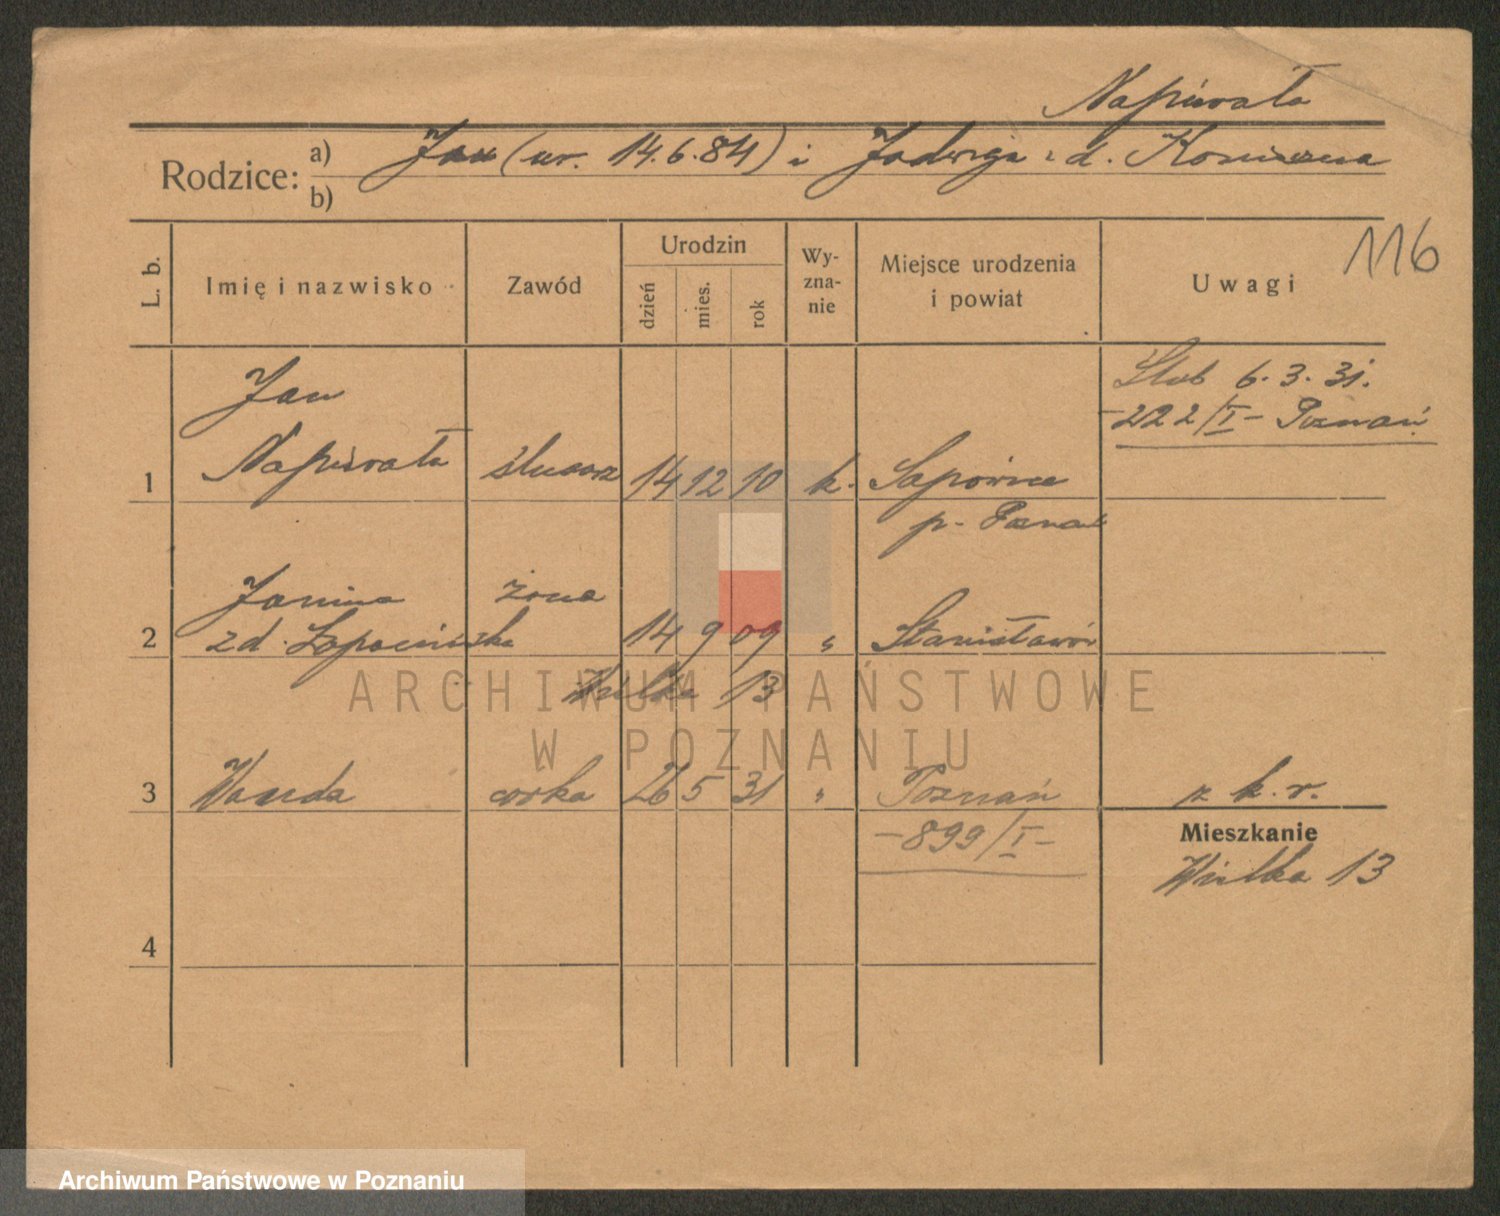 Napierała
Rodzice: a) Jan (ur. 14.6.84) i Jadwiga z d.
b)
116
L. b. Imię i nazwisko Zawód Urodzin dzień mies. rok Wy-zna-nie Miejsce urodzenia i powiat Uwagi
Ślub 6.3.31.
-222/I- Poznań
Jan
1 Napierała ślusarz 14 12 10 k. Sapowice
p. Poznań
Janina żona
2 z d. Łopacińska 14 9 09 " Stanisławów
Wilka 13
3 Wanda córka 26 5 31 " Poznań k. r.
-899/I-
Mieszkanie
Wilka 13
4
ARCHIWUM PAŃSTWOWE
W POZNANIU
Archiwum Państwowe w Poznaniu